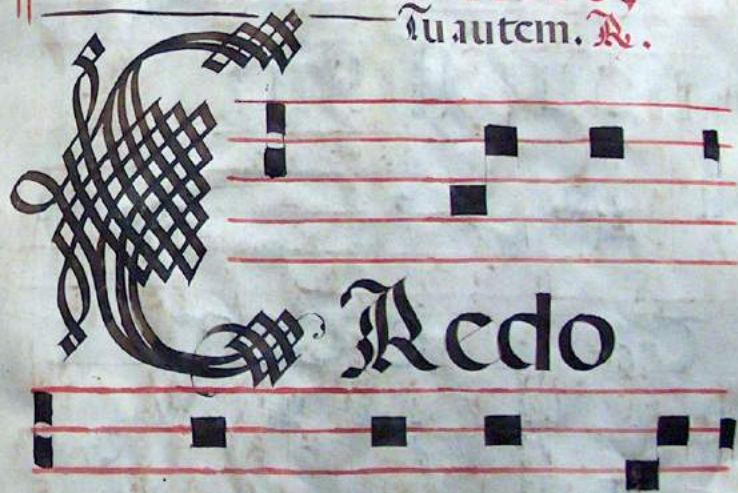 Tu autem. R.
CRedo